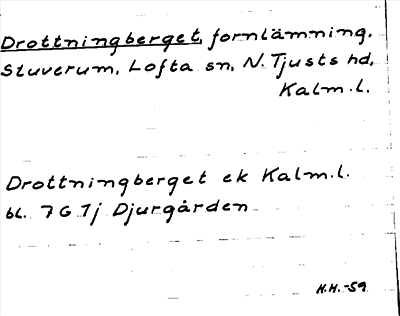 Drottningberget, fornlämning.
Stuverum, Lofta sn, N. Tjusts hd,
Kalm.l.
Drottningberget ek Kalm.l.
bl. 7 G 7j Djurgården
H.H.-59